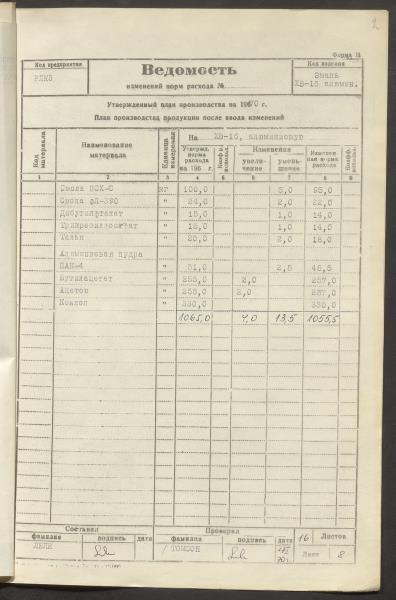 2
Форма 14
Код предприятия
РЛКЗ
Ведомость
изменений норм расхода №
Код изделия
Эмаль
ХВ-16 алюмин.
Утвержденный план производства на 1970 г.
План производства продукции после ввода изменений
Код материала
Наименование материала
Единица измерения
На ХВ-16, алюминиевую
Утвержд. норма расхода на 196 г.
Коэфф. использ.
Изменения
увеличение
уменьшение
Измененная норма расхода
Коэфф. использ.
1 2 3 4 5 6 7 8 9
Смола ПСХ-С кг 100,0 5,0 95,0
Смола 24,0 2,0 22,0
Дибутилфталат " 15,0 1,0 14,0
Трикрезилфосфат " 15,0 1,0 14,0
Тальк " 20,0 2,0 18,0
Алюминиевая пудра
ПАК-4 " 51,0 2,5 48,5
Бутилацетат " 255,0 2,0 257,0
Ацетон " 255,0 2,0 257,0
Ксилол " 330,0 330,0
1065,0 4,0 13,5 1055,5
Составил
Проверил
фамилия подпись дата фамилия подпись дата
16 Листов
ЛЕЛИ
ТОМСОН
Лист 8